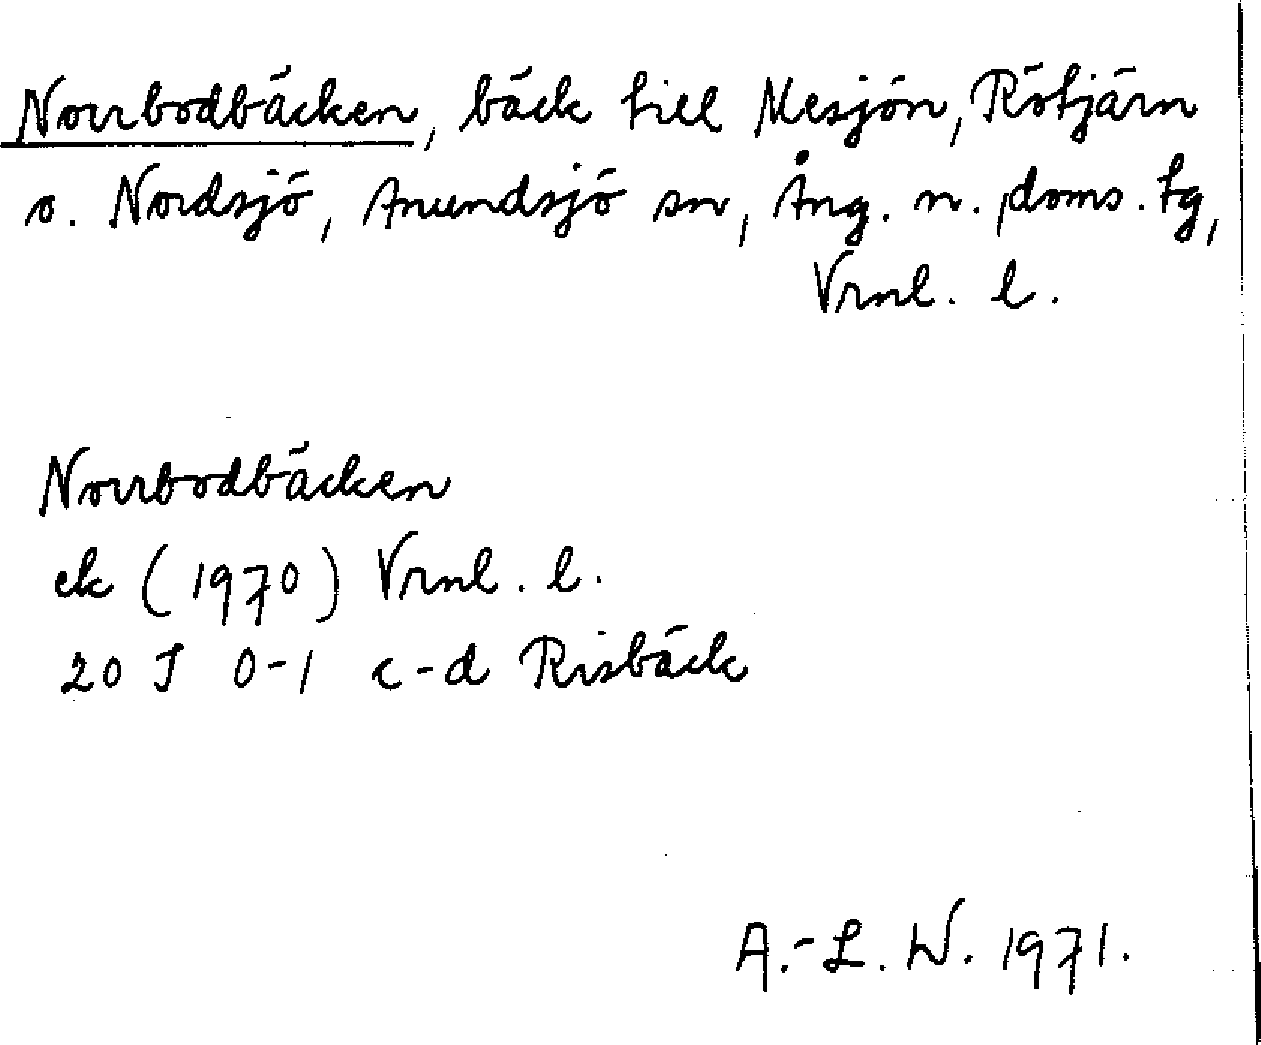 Norrbodbäcken, bäck till Mesjön, Rötjärn
o. Nordsjö, Anundsjö sn, Ång. n. doms. tg,
Vrnl. l.
Norrbodbäcken
ek (1970) Vrnl. l.
20 J 0-1 c-d Risbäck
A.-L. W. 1971.